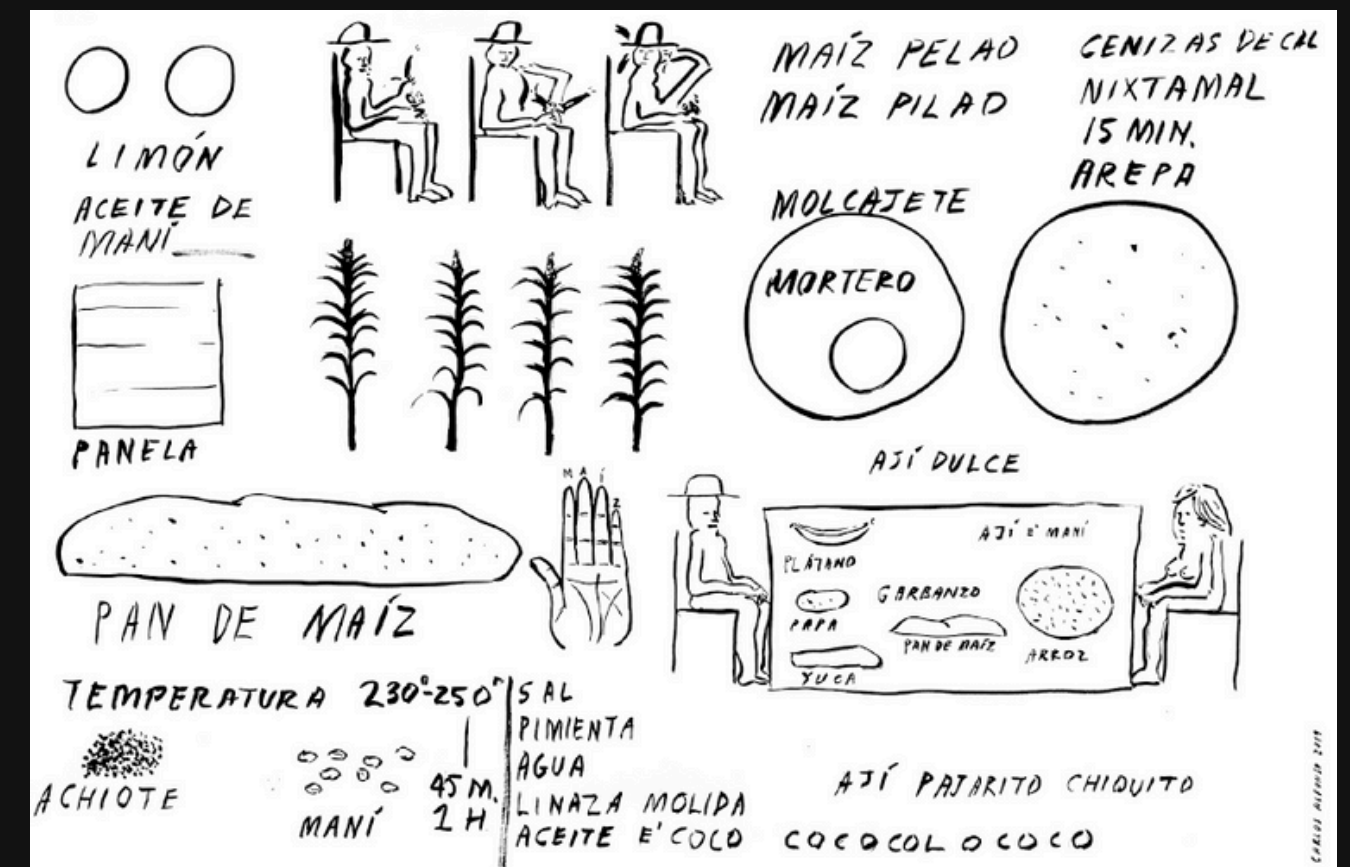 LIMÓN
ACEITE DE
MANÍ
PANELA
MAÍZ PELAO
MAÍZ PILAO
CENIZAS DE CAL
NIXTAMAL
15 MIN.
AREPA
MOLCAJETE
MORTERO
AJÍ DULCE
PAN DE MAÍZ
M A Í Z
PLÁTANO
AJÍ E' MANÍ
GARBANZO
PAPA
PAN DE MAÍZ
ARROZ
YUCA
TEMPERATURA 230°-250°
45 M.
1 H
ACHIOTE
MANÍ
SAL
PIMIENTA
AGUA
LINAZA MOLIDA
ACEITE E' COCO
AJÍ PAJARITO CHIQUITO
COCOCOL O COCO
CARLOS ALFONZO 2019